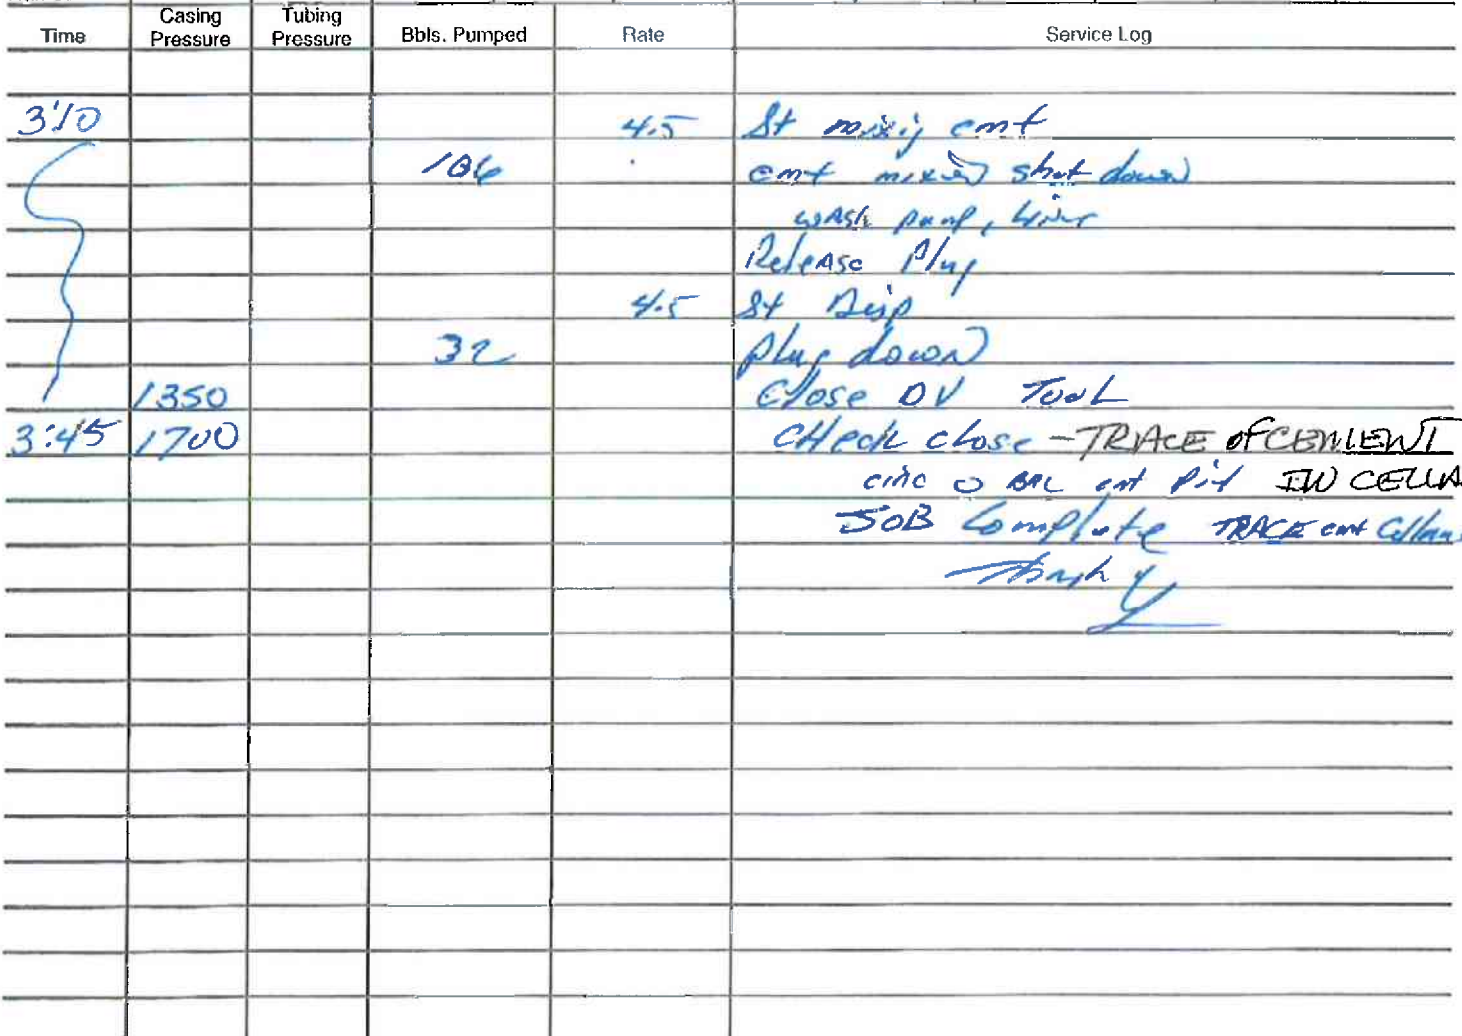 Time Casing Pressure Tubing Pressure Bbls. Pumped Rate Service Log
3:10 4.5 St mixig cmt
186 cmt mixed shut down
wash pump, lines
Release Plug
4.5 St Disp
32 plug down
1350 Close DV TooL
3:45 1700 CHeck close - TRACE of CEMENT
circ 0 BBL cmt pit IN CELLA
JOB Complete TRACE cmt Cellar